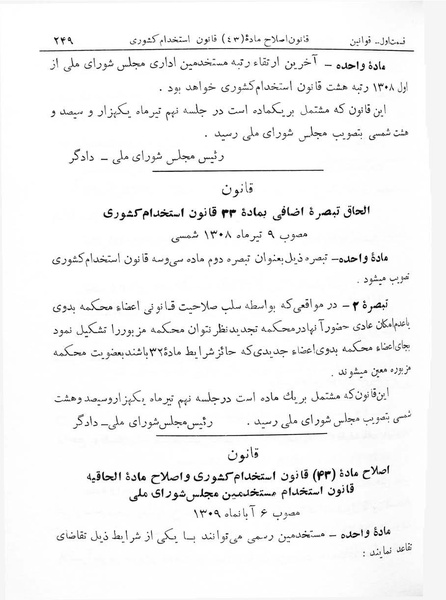 قسمت اول - قوانین قانون اصلاح مادهٔ (۴۳) قانون استخدام کشوری ۲۴۹
مادهٔ واحده - آخرین ارتقاء رتبه مستخدمین اداری مجلس شورای ملی از
اول ۱۳۰۸ رتبه هشت قانون استخدام کشوری خواهد بود .
این قانون که مشتمل بریکماده است در جلسه نهم تیرماه یکهزار و سیصد و
هشت شمسی بتصویب مجلس شورای ملی رسید .
رئیس مجلس شورای ملی - دادگر
قانون
الحاق تبصرهٔ اضافی بمادهٔ ۳۳ قانون استخدام کشوری
مصوب ۹ تیرماه ۱۳۰۸ شمسی
مادهٔ واحده- تبصره ذیل بعنوان تبصره دوم ماده سی‌وسه قانون استخدام کشوری
تصویب میشود .
تبصرهٔ ۲ - در مواقعی‌که بواسطه سلب صلاحیت قانونی اعضاء محکمه بدوی
یا عدم امکان عادی حضور آنها در محکمه تجدید نظر نتوان محکمه مزبور را تشکیل نمود
بجای اعضاء محکمه بدوی اعضاء جدیدی‌که حائز شرایط مادهٔ ۳۲ باشند بعضویت محکمه
مزبوره معین میشوند .
این‌قانون‌که مشتمل بریك ماده است در جلسه نهم تیرماه یکهزار و سیصد و هشت
شمسی بتصویب مجلس شورای ملی رسید . رئیس مجلس شورای ملی - دادگر
قانون
اصلاح مادهٔ (۴۳) قانون استخدام کشوری و اصلاح مادهٔ الحاقیه
قانون استخدام مستخدمین مجلس شورای ملی
مصوب ۶ آبانماه ۱۳۰۹
مادهٔ واحده - مستخدمین رسمی می‌توانند با یکی از شرایط ذیل تقاضای
تقاعد نمایند :